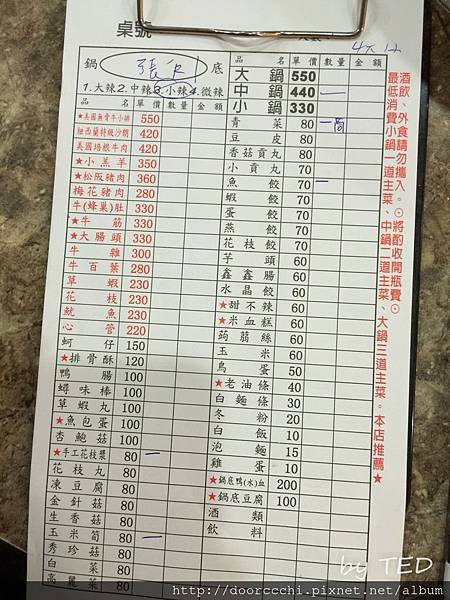 桌號
鍋 張R 底
1.大辣2.中辣3.小辣4.微辣
品名 單價 數量 金額
★美國無骨牛小排 550
紐西蘭特級沙朗 420
美國培根牛肉 420
★小羔羊 350
★松阪豬肉 360
梅花豬肉 280
牛(蜂巢)肚 330
★牛筋 330
★大腸頭 330
牛雜 300
牛百葉 280
草蝦 230
花枝 230
魷魚 230
心管 220
蚵仔 150
★排骨酥 120
鴨腸 100
蟳味棒 100
草蝦丸 100
★魚包蛋 100
杏鮑菇 100
★手工花枝漿 80 一
花枝丸 80
凍豆腐 80
金針菇 80
生香菇 80
玉米筍 80 一
秀珍菇 80
白菜 80
高麗菜 80
品名 單價 數量 金額
大鍋 550
中鍋 440 一
小鍋 330
青菜 80 一筒
豆皮 80
香菇貢丸 80
小貢丸 70
魚餃 70 一
蝦餃 70
蛋餃 70
燕餃 70
花枝餃 70
芋頭 60
鑫鑫腸 60
水晶餃 60
★甜不辣 60
★米血糕 60
蒟蒻絲 60
玉米 60
鳥蛋 50
★老油條 40
白麵條 30
冬粉 20
白飯 10
泡麵 15
雞蛋 10
★鍋底鴨(水)血 200
★鍋底豆腐 100
酒類
飲料
酒飲、外食請勿攜入。⊙將酌收開瓶費⊙
最低消費小鍋一道主菜、中鍋二道主菜、大鍋三道主菜。本店推薦★
by TED
http://doorccchi.pixnet.net/album